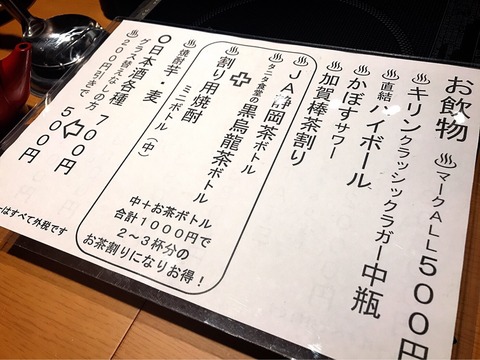 お飲物 ♨マークALL500円
♨キリンクラッシックラガー中瓶
♨直結ハイボール
♨かぼすサワー
♨加賀棒茶割り
♨JA静岡茶ボトル
♨タニタ食堂の黒烏龍茶ボトル
✚
割り用焼酎
♨焼酎芋・麦 ミニボトル(中)
中+お茶ボトル
合計1000円で
2~3杯分の
お茶割りになりお得!
〇日本酒各種 700円
グラス替えなしの方
200円引きで 500円
ーはすべて外税です